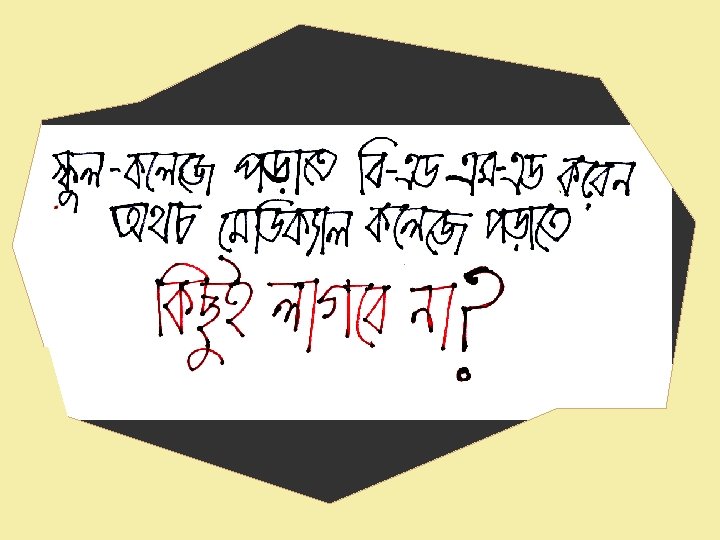 স্কুল-কলেজে পড়াতে বি-এড এম-এড করেন
অথচ মেডিক্যাল কলেজে পড়াতে
কিছুই লাগবে না?